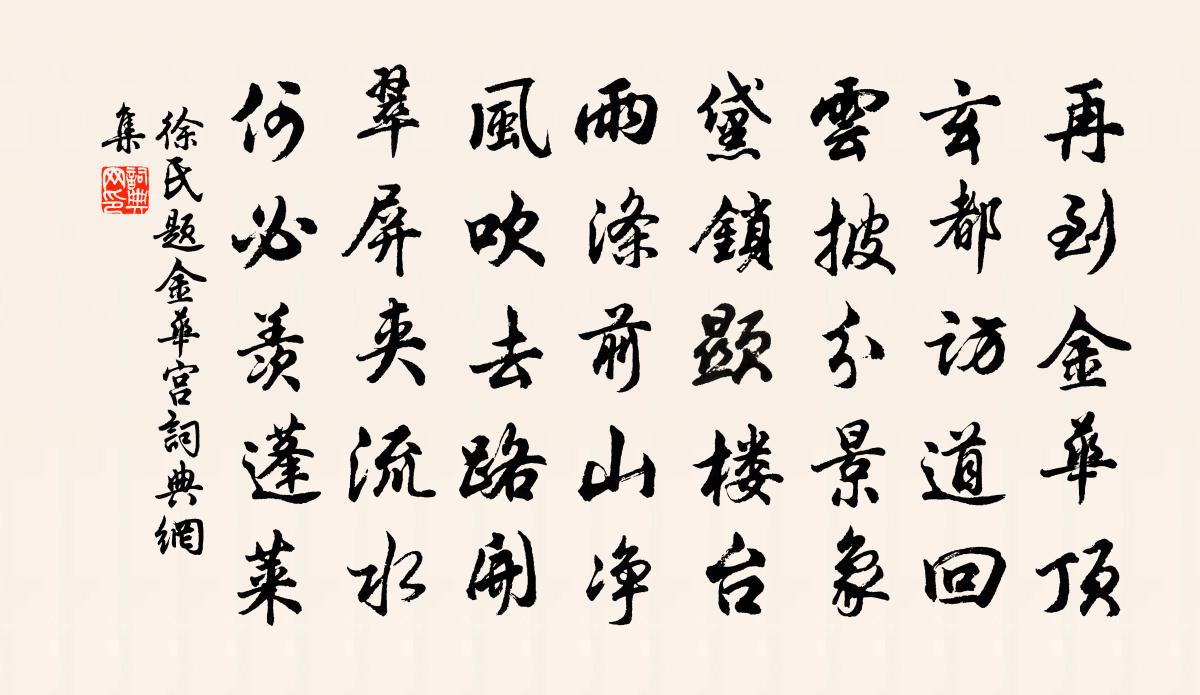 再到金華頂
玄都訪道回
雲披分景象
黛鎖顯楼台
雨滌前山净
風吹去路開
翠屏夾流水
何必羨蓬萊
徐氏题金華宫詞典網
集
詞典
网印